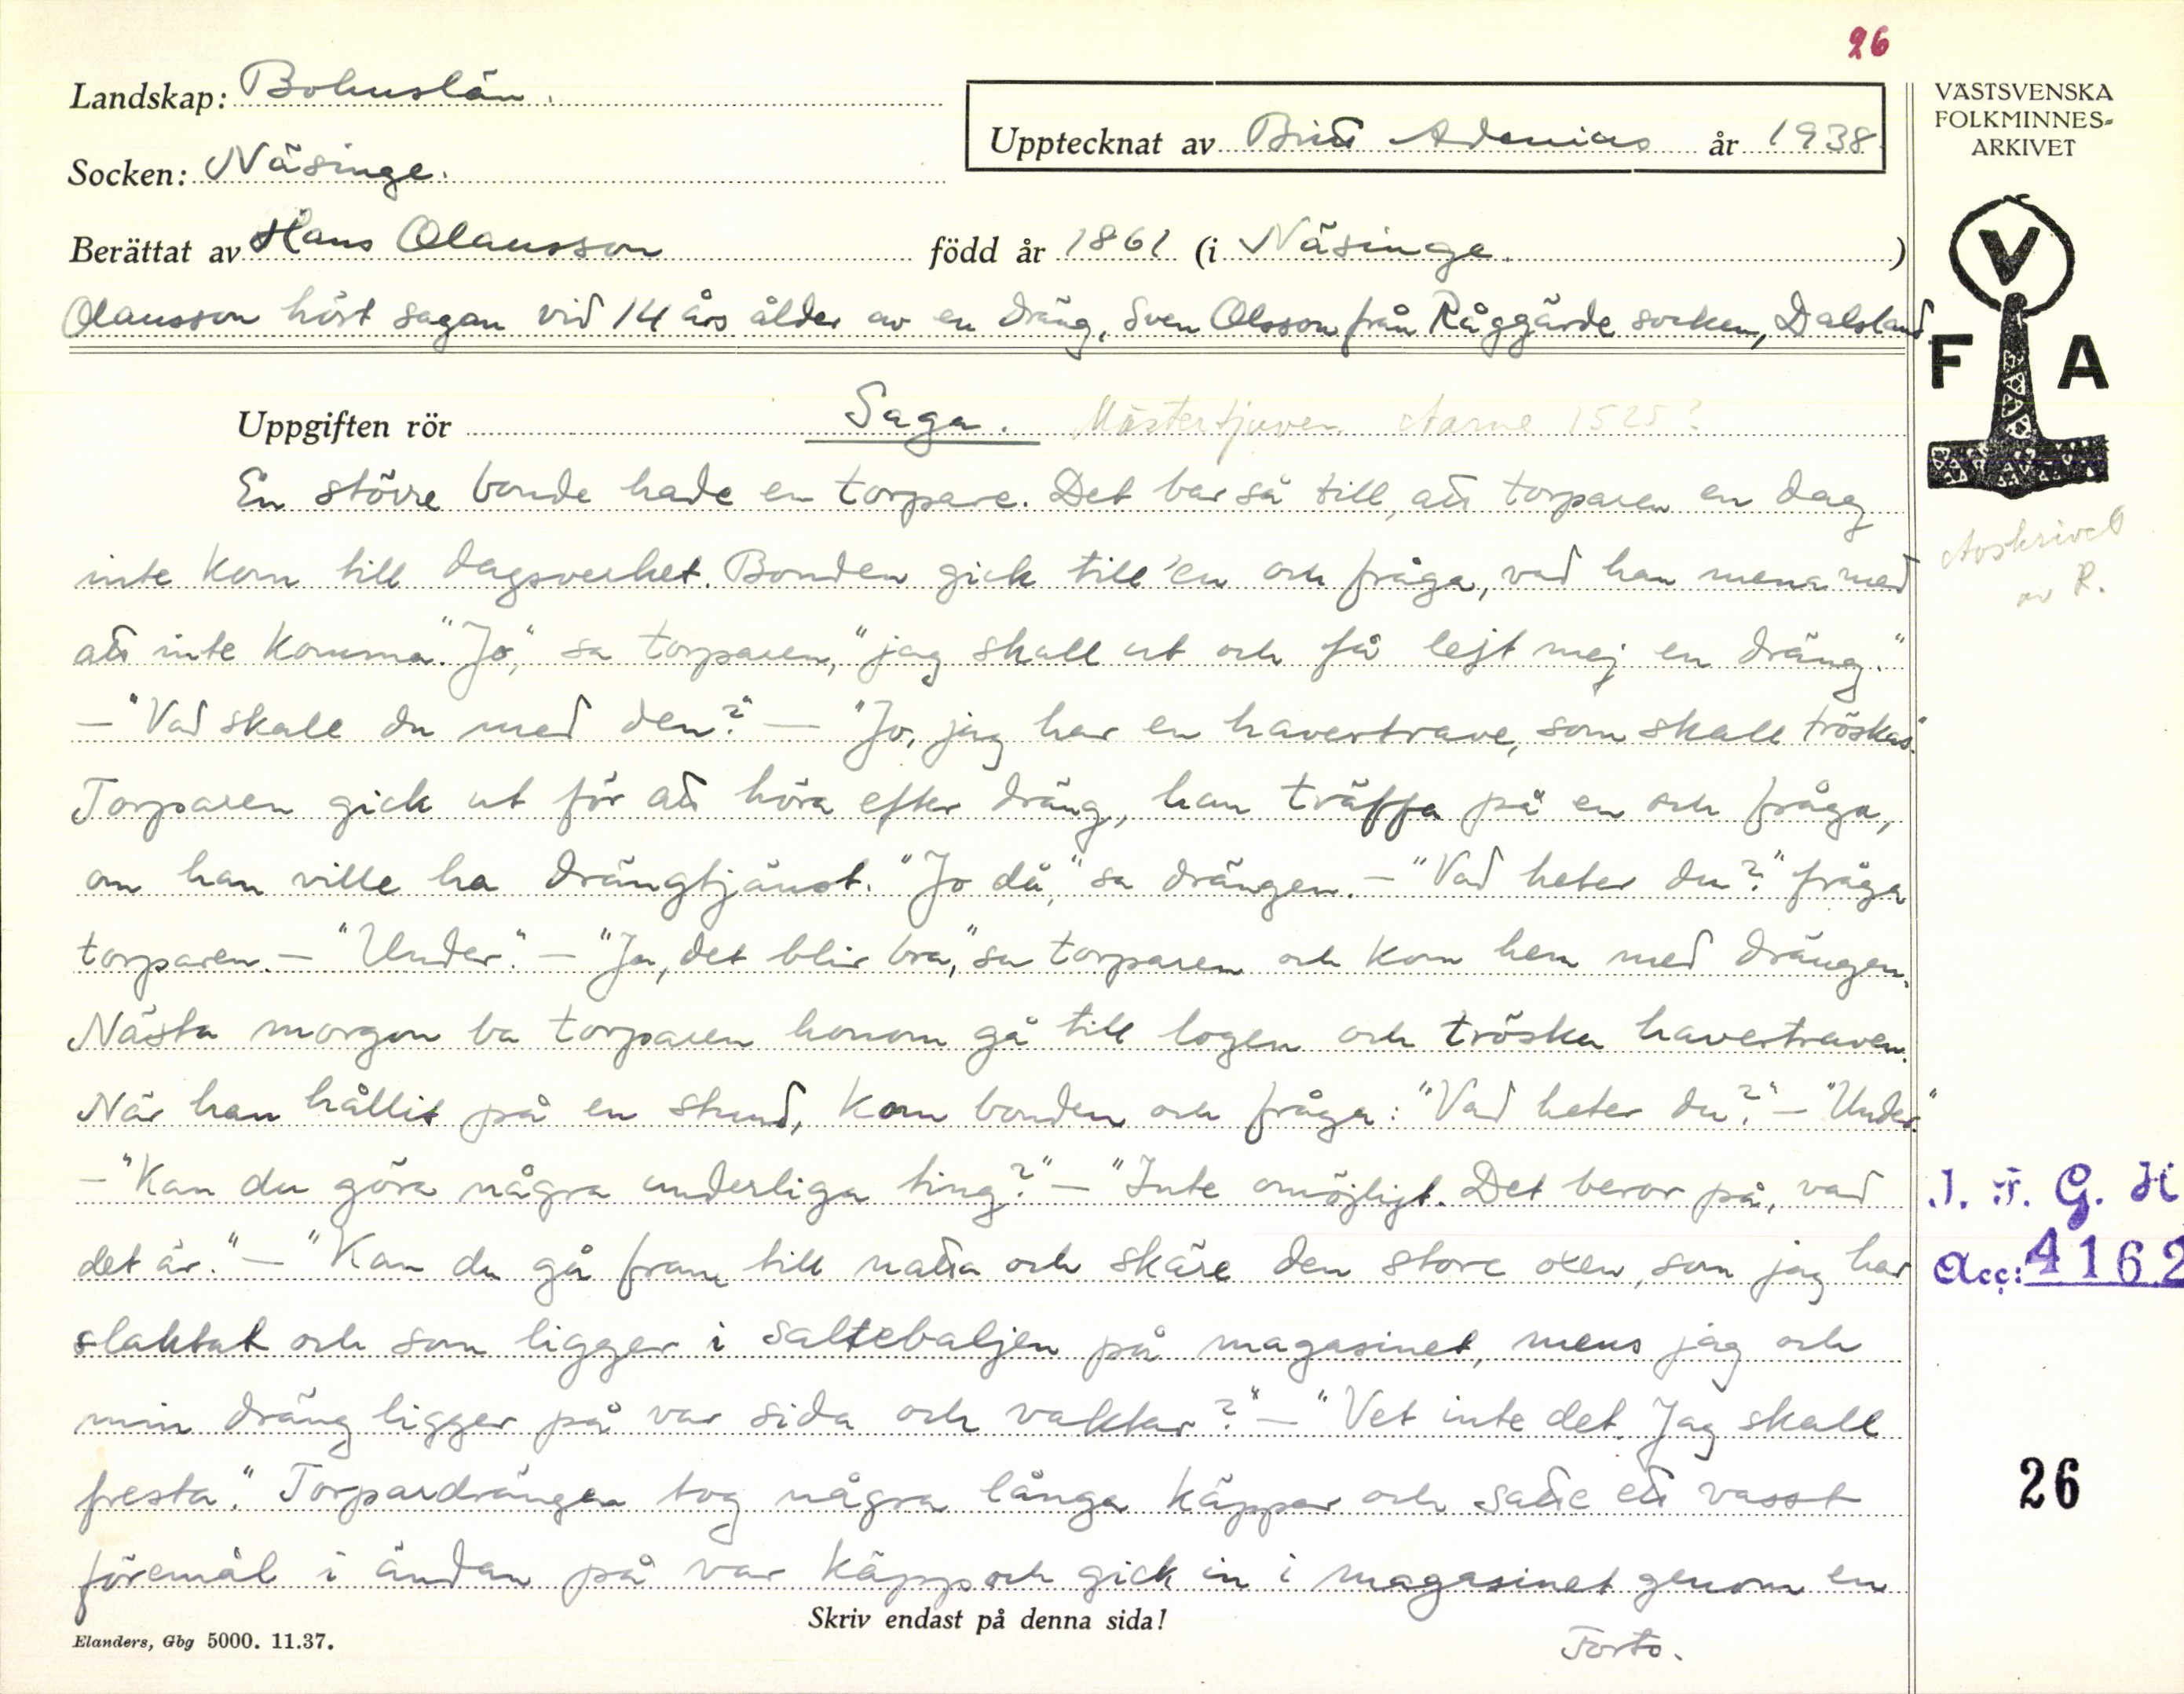 26
Landskap: Bohuslän.
Upptecknat av Britt Adenius år 1938.
Socken: Näsinge.
Berättat av Hans Olausson född år 1861 (i Näsinge.)
Olausson hört sagan vid 14 års ålder av en dräng, Sven Olsson från Råggärde socken, Dalsland.
Uppgiften rör Saga. Mästertjuven Aarne 1525?
En större bonde hade en torpare. Det bar så till, att torparen en dag
inte kom till dagsverket. Bonden gick till 'en och fråga, vad han mena med
att inte komma. "Jo," sa torparen, "jag skall ut och få lejt mej en dräng."
— "Vad skall du med den?" — "Jo, jag har en havertrave, som skall tröskas."
Torparen gick ut för att höra efter dräng, han träffa på en och fråga,
om han ville ha drängtjänst. "Jo då," sa drängen. — "Vad heter du?" fråga
torparen. — "Under." — "Ja, det blir bra," sa torparen och kom hem med drängen.
Nästa morgon ba torparen honom gå till logen och tröska havertraven.
När han hållit på en stund, kom bonden och fråga: "Vad heter du?" — "Under."
— "Kan du göra några underliga ting?" — "Inte omöjligt. Det beror på, vad
det är." — "Kan du gå fram till natta och skäre den store oxen, som jag har
slaktat och som ligger i saltebaljen på magasinet, mens jag och
min dräng ligger på var sida och vaktar?" — "Vet inte det. Jag skall
fresta." Torpardrängen tog några långa käppar och satte ett vasst
föremål i ändan på var käpp och gick in i magasinet genom en
Skriv endast på denna sida!
Elanders, Gbg 5000. 11.37.
Forts.
VÄSTSVENSKA
FOLKMINNES-
ARKIVET
V
F A
Avskrivet
av R.
I. F. G. H
Acc: 4162
26